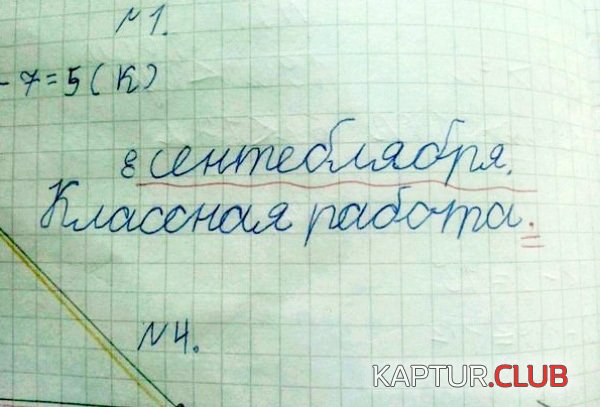 №1.
- 7=5 (К)
8 сентеблября.
Классная работа.
№4.
KAPTUR.CLUB